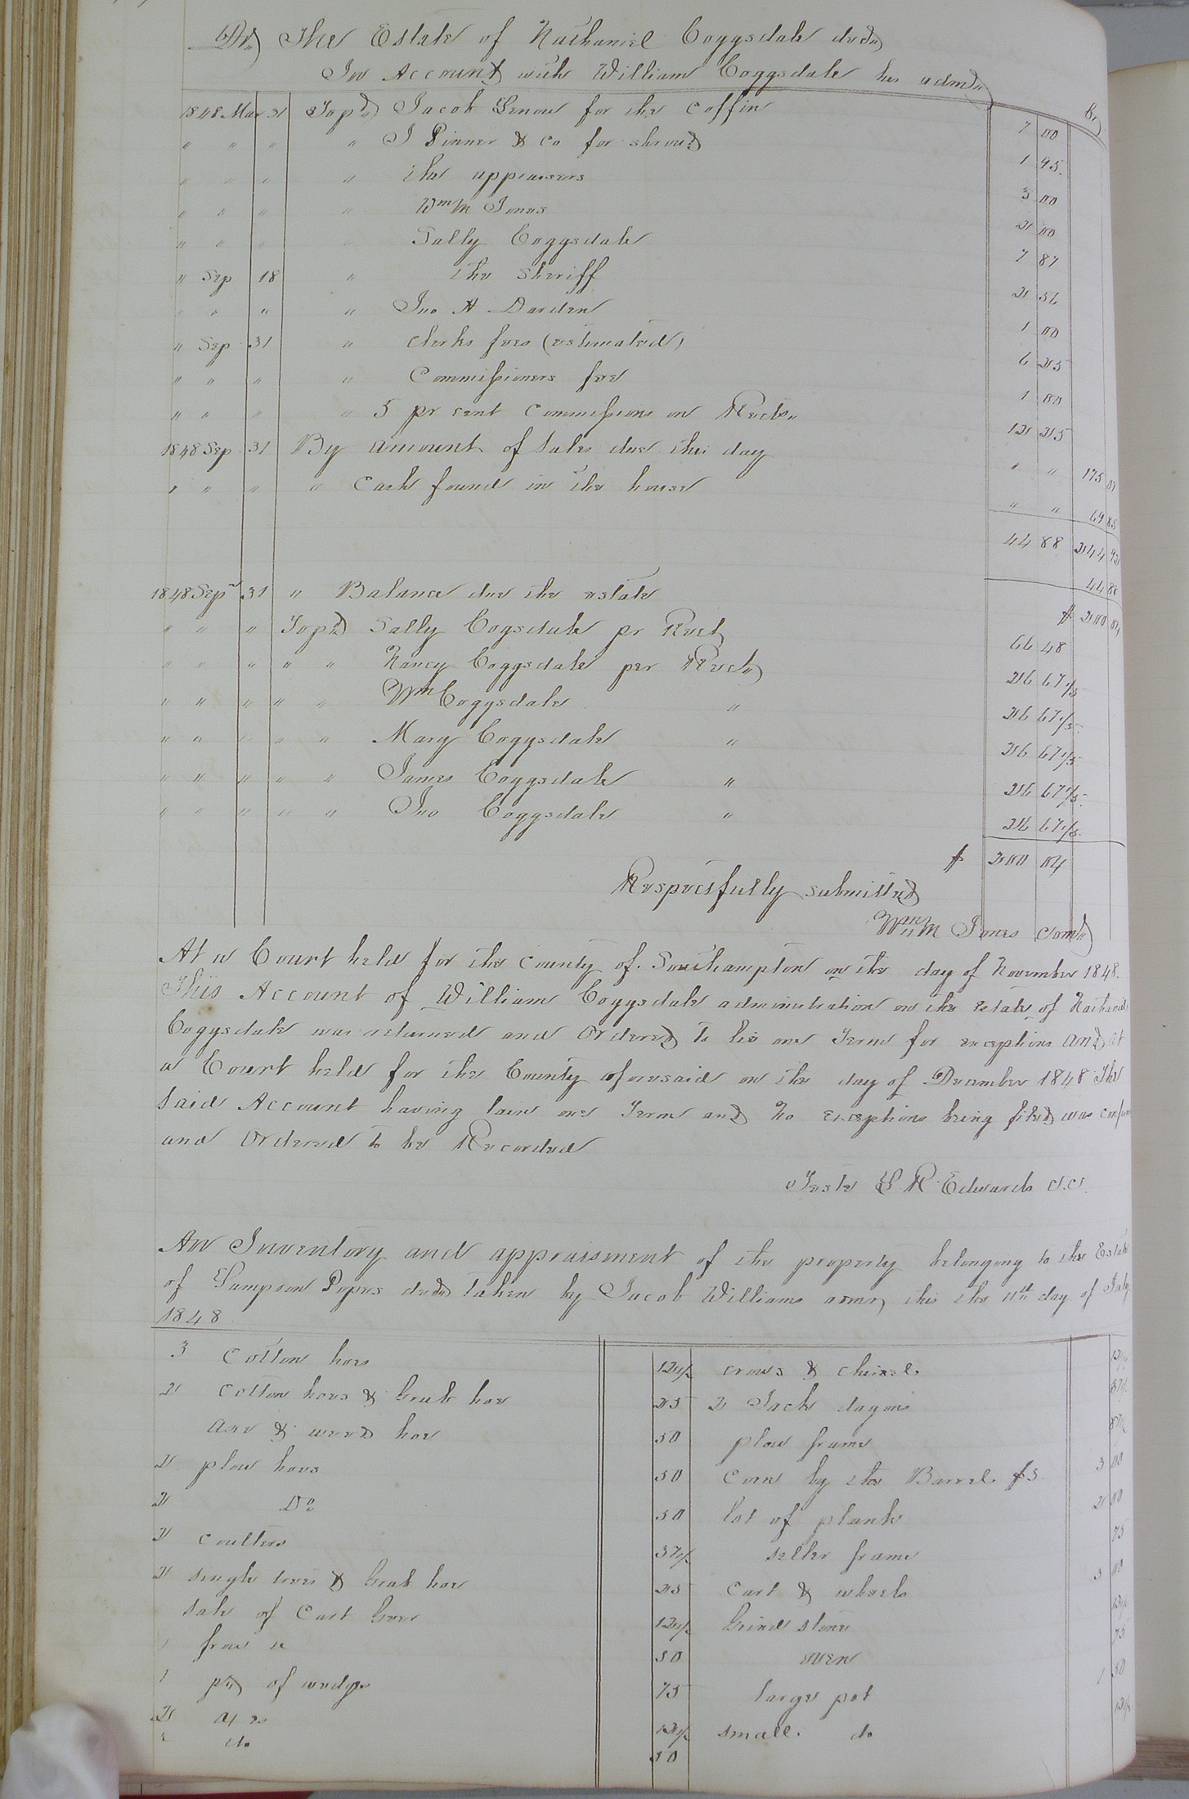 Dr) The Estate of Nathaniel Coggsdale decd
In Account with William Coggsdale his admr Cr)
1848 Mar 31 To pd Jacob for the coffin 7 00
" " " " J Pinner & Co for shroud 1 95
" " " " the appraisers 3 00
" " " " Wm M Jones 2 00
" " " " Sally Coggsdale 7 87
" Sep 18 " the sheriff 2 56
" " " " Jno A Darden 1 00
" Sep 31 " clerks fees (estimated) 6 25
" " " " Commissioners fee 1 00
" " " " 5 pr cent Commissions on Rects 12 25
1848 Sep 31 By amount of Sales due this day " " 175
" " " " Cash found in the house " " 69 85
44 88 244 92
44 88
1848 Sepr 31 " Balance due the estate $ 200 04
" " " To pd Sally Cogsdale pr Rect 66 68
" " " " " Nancy Coggsdale per Rect 26 67 1/5
" " " " " Wm Coggsdale " 26 67 1/5
" " " " " Mary Coggsdale " 26 67 1/5
" " " " " James Coggsdale " 26 67 1/5
" " " " " Jno Coggsdale " 26 67 1/5
$ 200 04
Respectfully submitted
Wm M Jones Comr
At a Court held for the County of Southampton on the day of November 1848
This Account of William Coggsdale administration on the estate of Nathaniel
Coggsdale was returned and Ordered to lie one Term for exceptions And at
a Court held for the County aforesaid on the day of December 1848 The
Said Account having lain one Term and No exceptions being filed was
and Ordered to be Recorded
Teste L R Edwards C.C.
An Inventory and appraisment of the property belonging to the Estate
of Sampson decd taken by Jacob Williams admr this the 11th day of July
1848
3 Cotton hoes 12 1/2 crows & chisel
2 Cotton hoes & Grub hoe 25 2 Jack
axe & weed hoe 50 plow frame
2 plow hoes 50 Corn by the Barrel $3 3 00
2 Do 50 lot of plank 2 00
2 coulters 37 1/2 frame 75
2 single trees & Grub hoe 25 Cart & wheels 3 00
Sale of Cart Gear 12 1/2 Grind stone
1 frow 50 oven 75
1 pr of wedges 75 large pot 1 50
2 Axes 12 1/2 small do
2 do 50